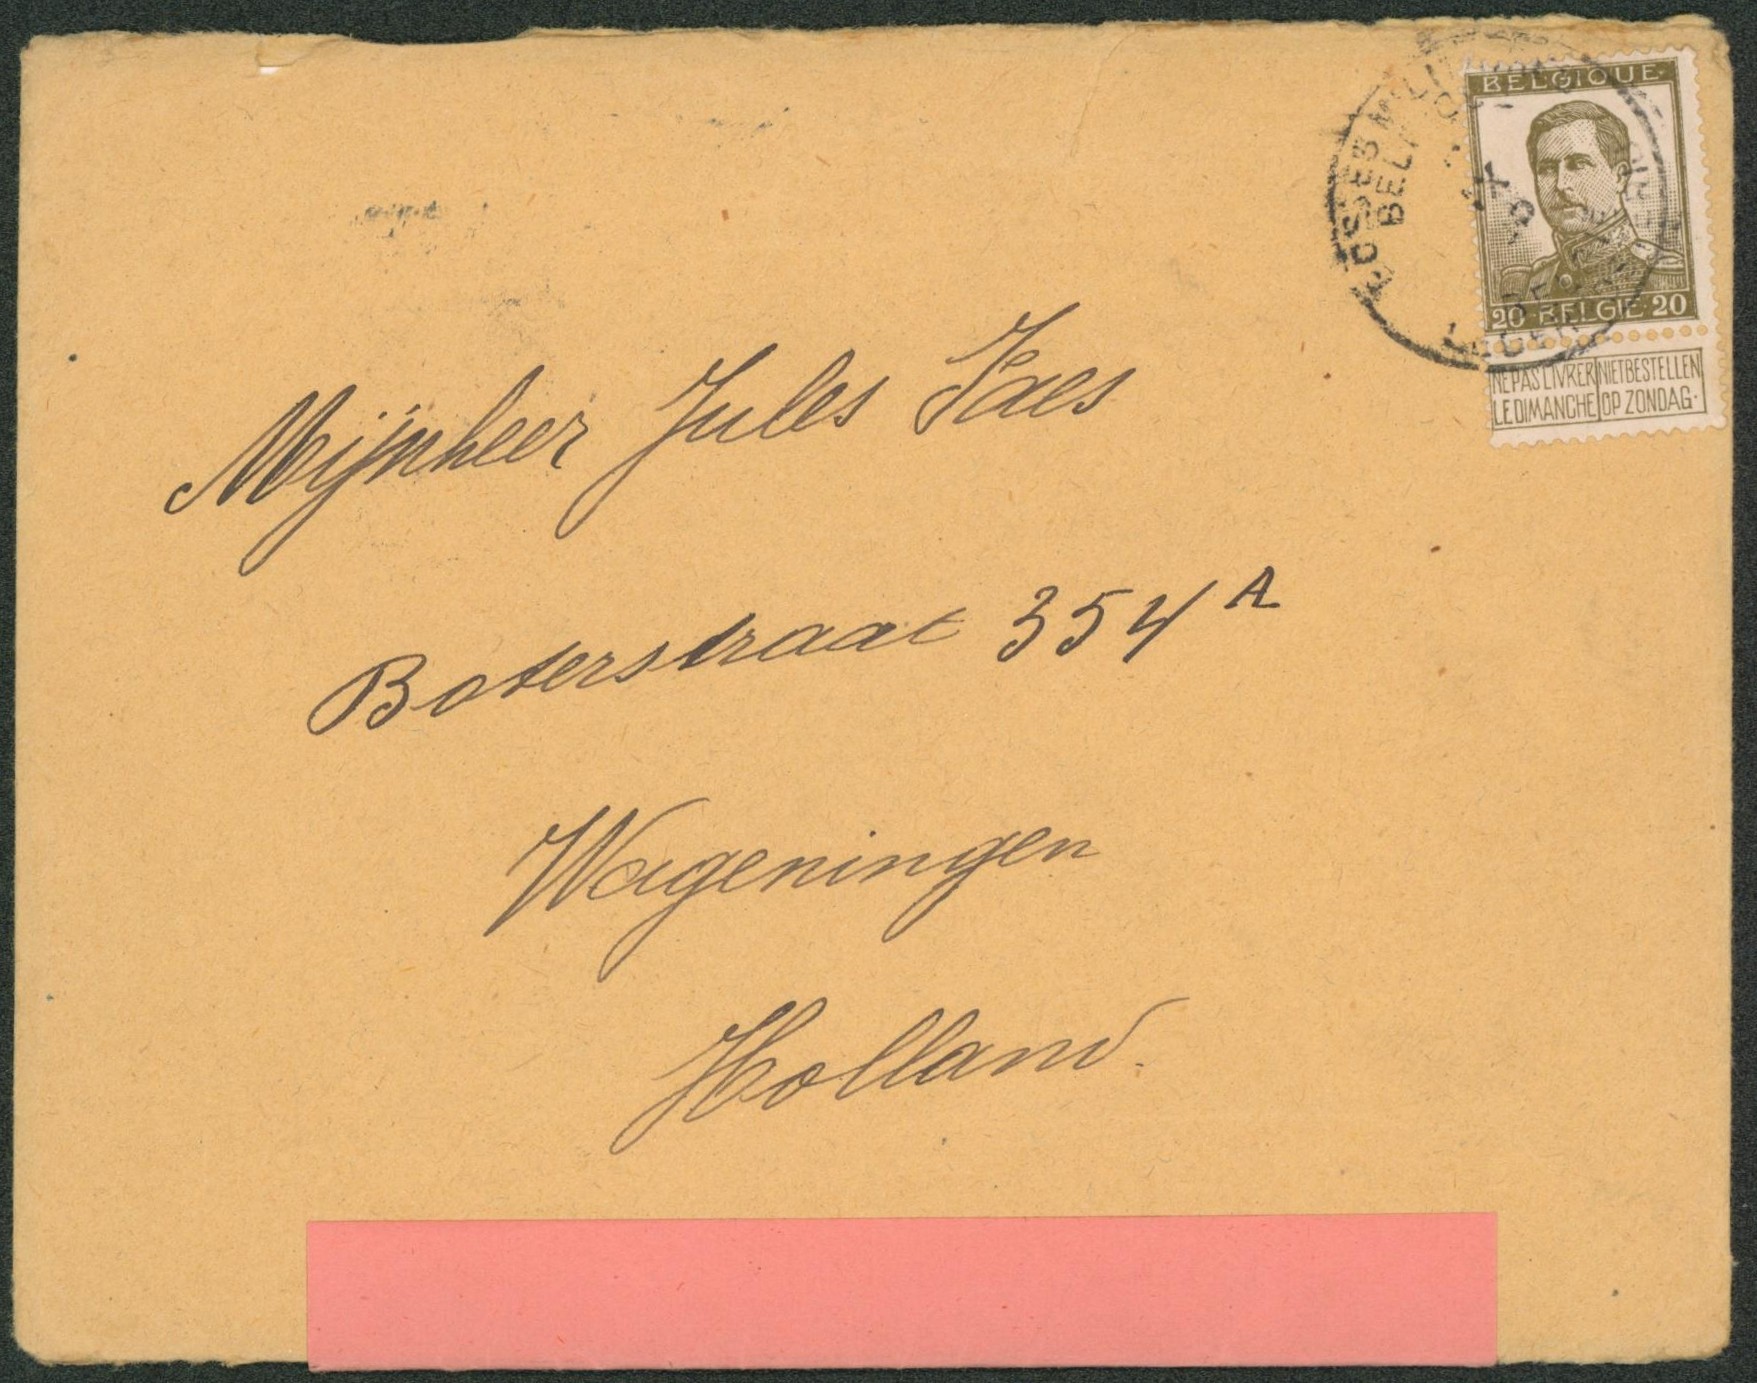 BELGIQUE
20 BELGIE 20
NE PAS LIVRER LE DIMANCHE
NIET BESTELLEN OP ZONDAG.
POSTES MIL
BEL
Mijnheer Jules Staes
Boterstraat 354 A
Wageningen
Holland.